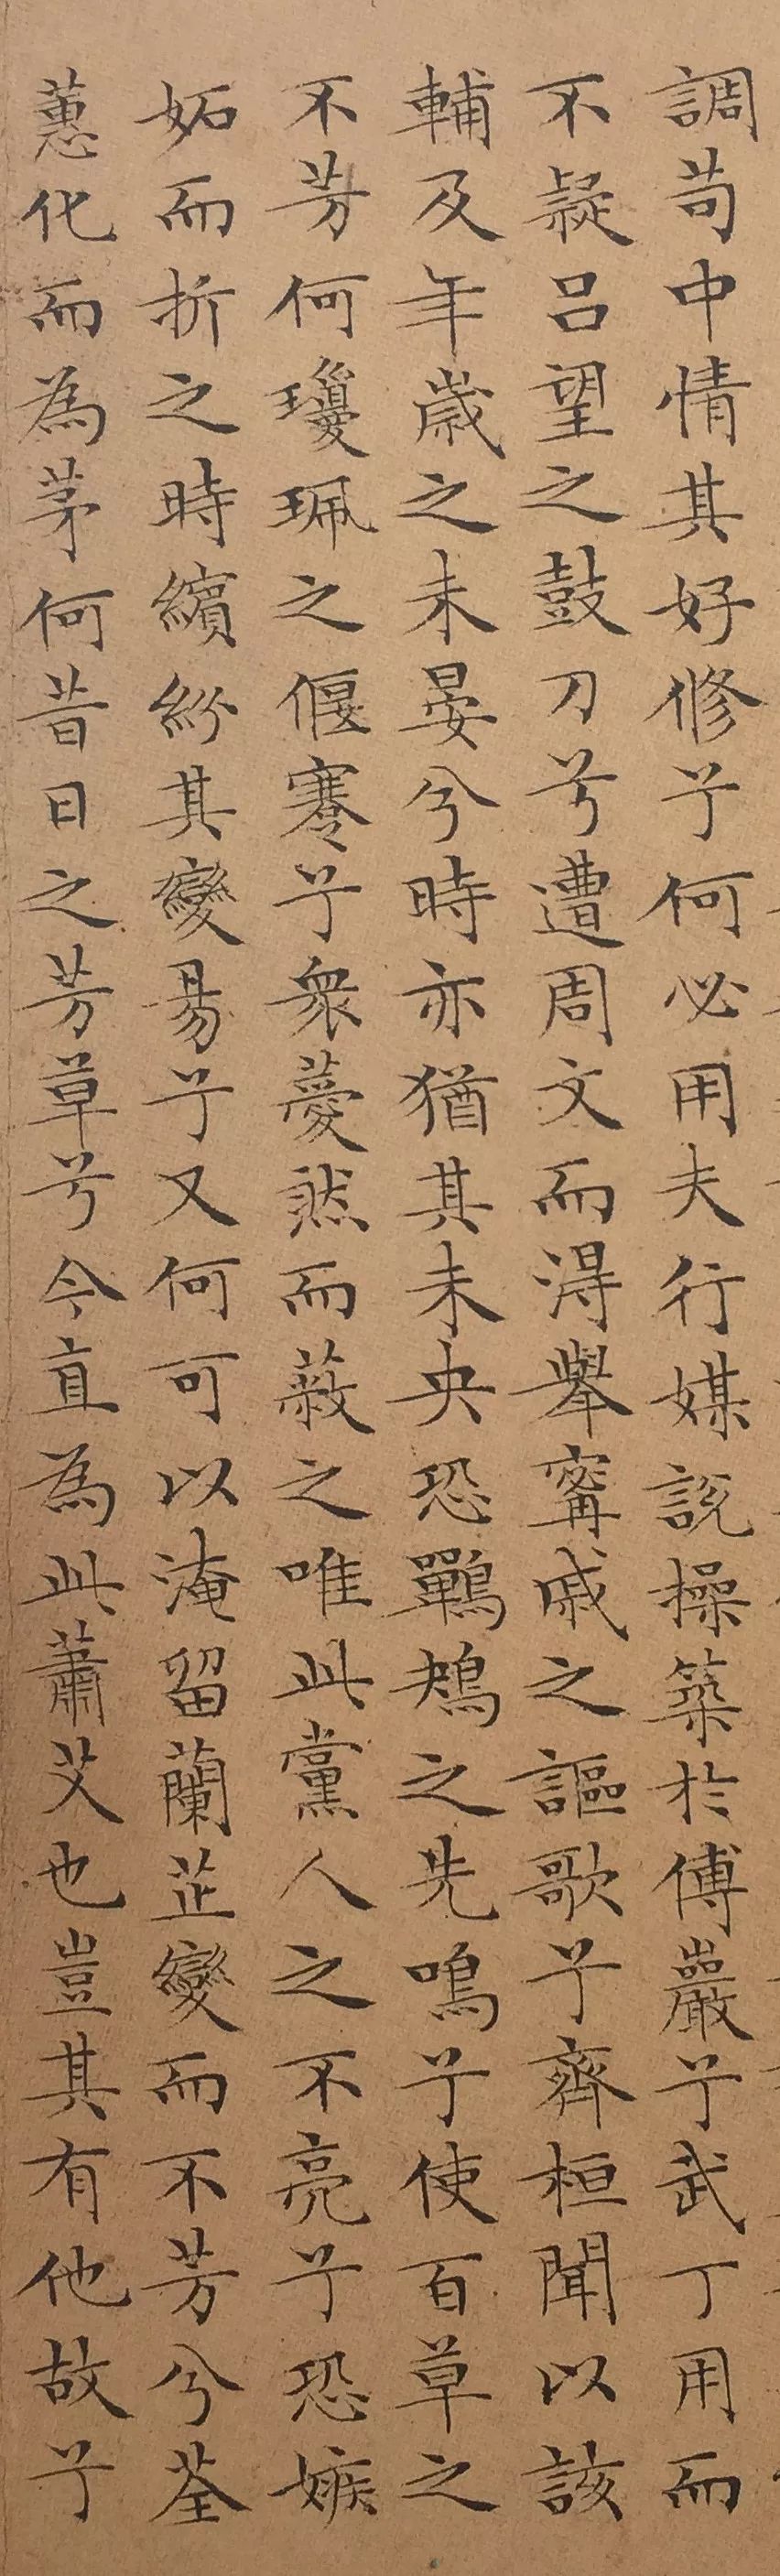 調苟中情其好修兮何必用夫行媒說操築於傅巖兮武丁用而
不疑呂望之鼓刀兮遭周文而得舉甯戚之謳歌兮齊桓聞以該
輔及年歲之未晏兮時亦猶其未央恐鷤鴂之先鳴兮使百草之
不芳何瓊珮之偃蹇兮衆薆然而蔽之唯此黨人之不亮兮恐嫉
妬而折之時繽紛其變易兮又何可以淹留蘭芷變而不芳兮荃
蕙化而為茅何昔日之芳草兮今直為此蕭艾也豈其有他故兮